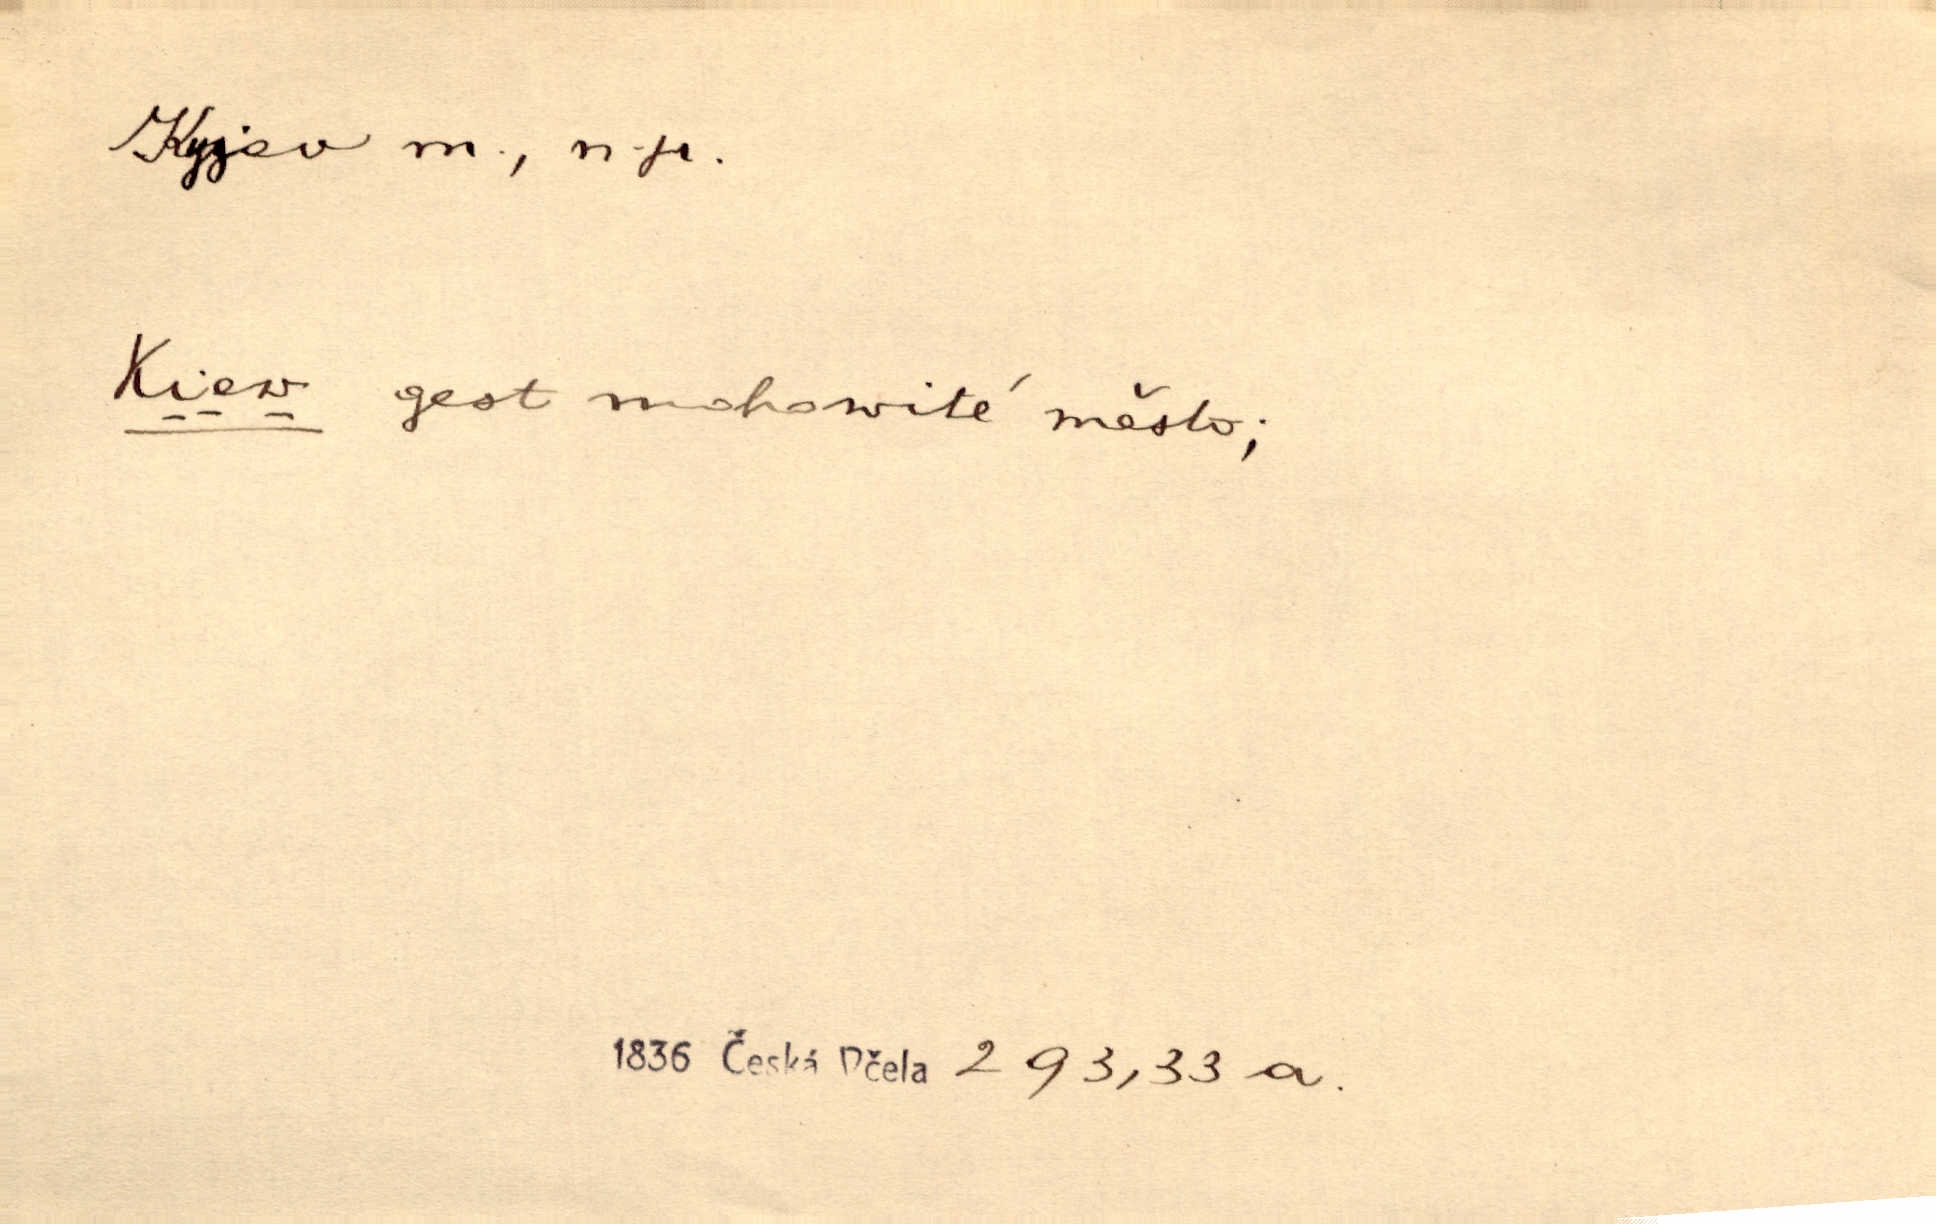 Kyjev m., n. p.
Kiew gest mohowité město;
1836 Česká Včela 293,33 a.